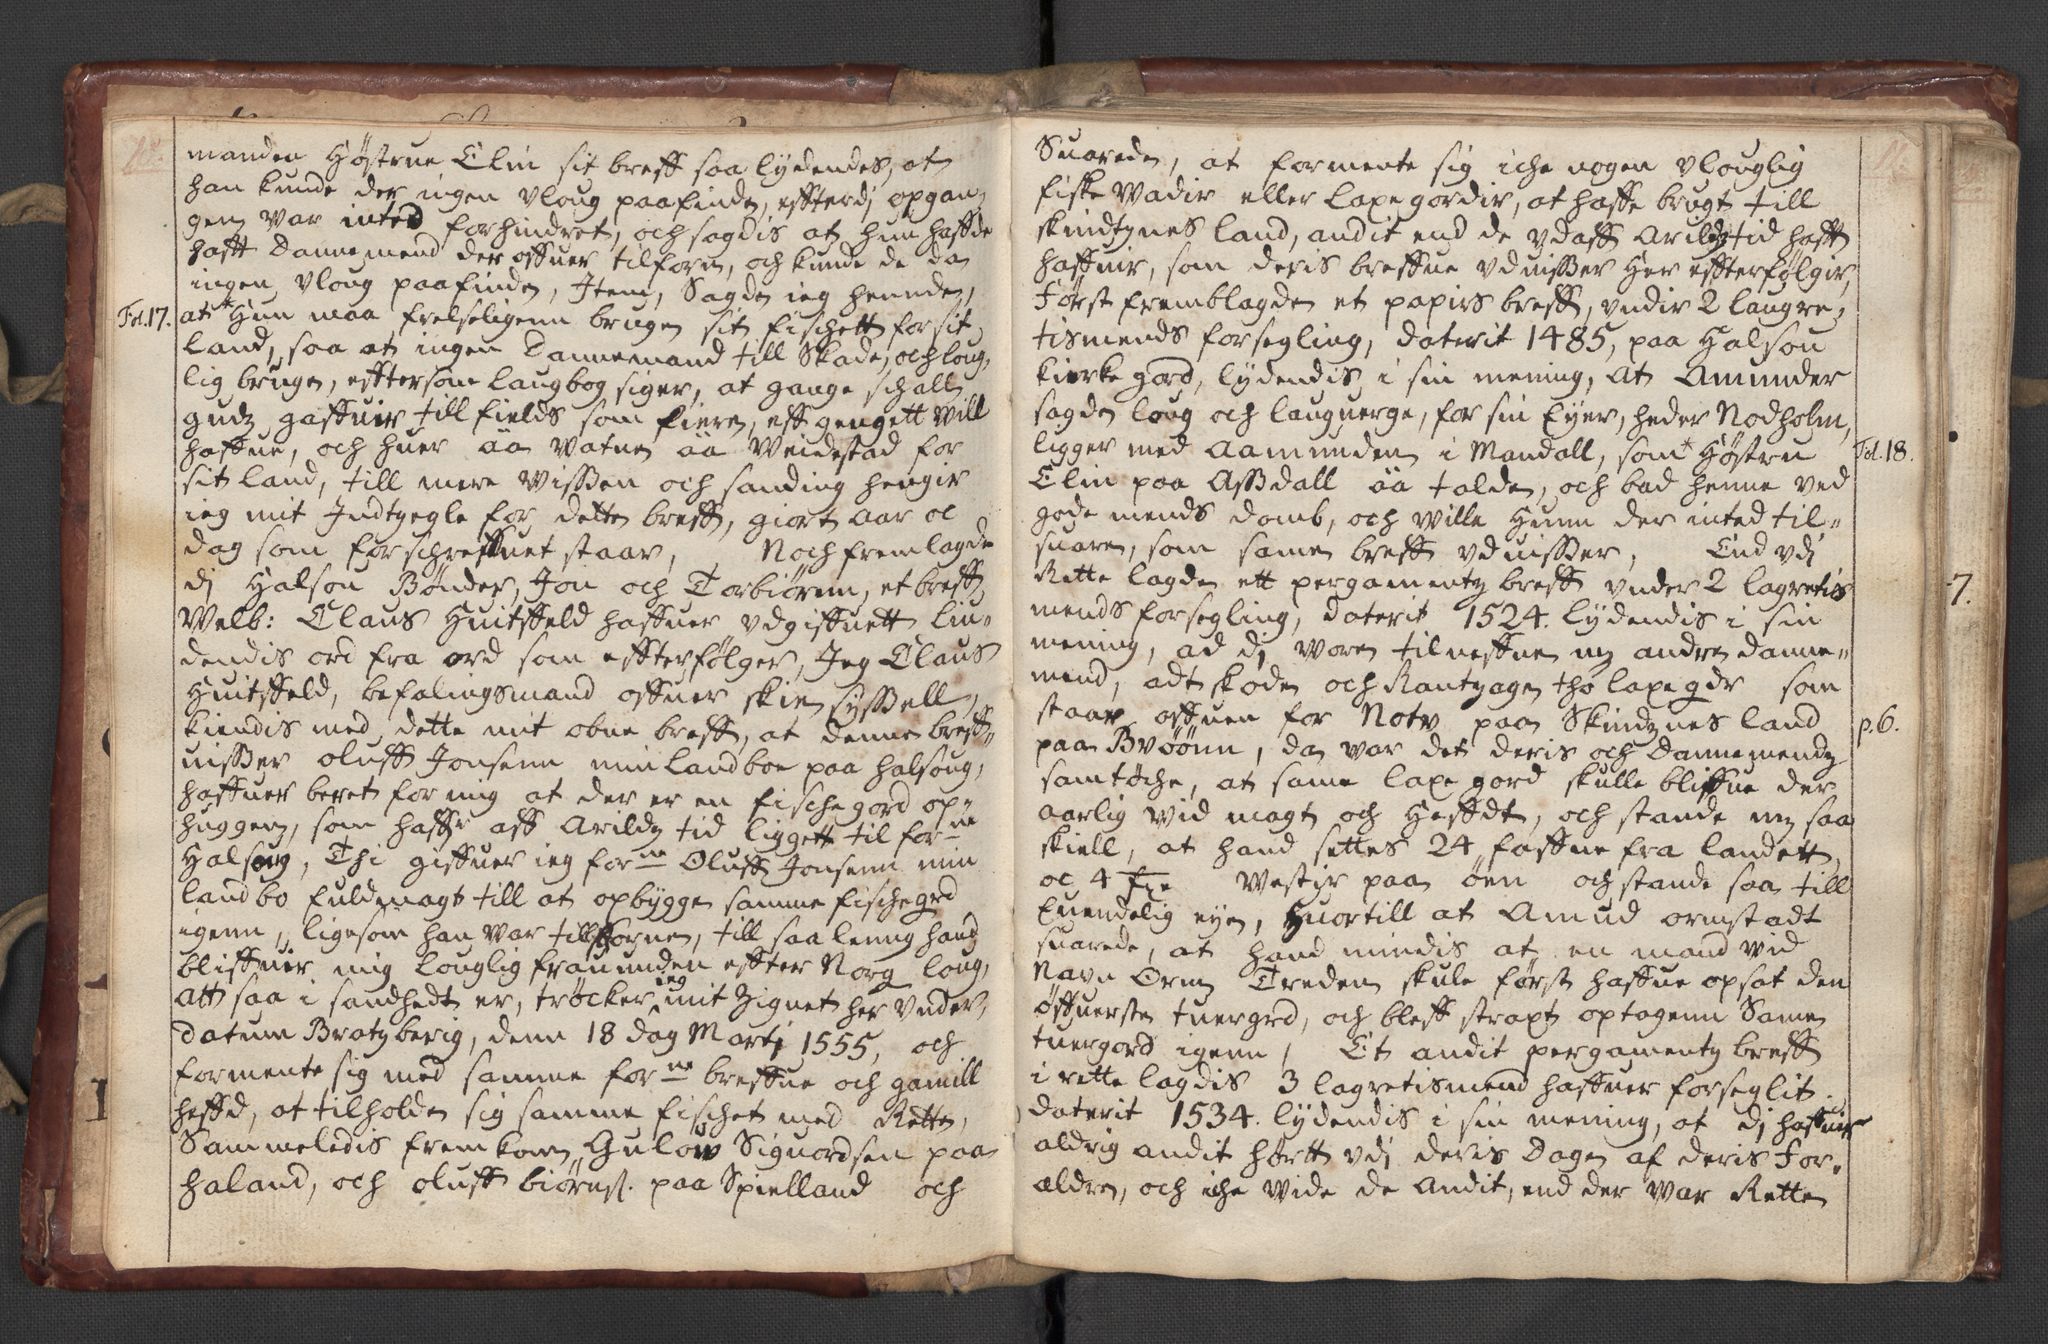 manden Høstrue Elin sit breff saa lydendes, at
han kunde der ingen vloug paafinde, effterdj opgan,
gen var inted forhindret, och sagdis at hun haffde
hafft Dannemend der offuer tilforn, och kunde de da
ingen vloug paafinde, Item, Sagde ieg hennde,
Fol. 17. at * Hun maa frelseligenn bruge sit fischett for sit
land, saa at ingen Dannemand till Skade, och loug,
lig bruge, efftersom laugbog siger, at gange schall
gudz gaffuir till fields som fiere, eff gengett will
haffue, och huer aa Watne aa Weidestad for
sit land, till mere Wissen och sanding hengir
ieg mit Indtzegle for dette breff, giort Aar oc
dag som forschreffuet staar, Noch fremlagde
dj Halsou Bønder, Jon och Torbiørnn, et breff
Welb: Claus Huitffeld haffuer vdgiffuett liu,,
dendis ord fra ord som effterfølger, Jeg Claus
Huitffeld, befalingsmand offuer skien sysszell,
kiendis med dette mit obne breff, at denne breff,,
uisser oluff Jonsenn min landboe paa halsoug,
haffuer beret for mig at der er en fischegord op,,
huggen, som haffr aff Arildz tid liggett til forne
Halsoug, Thi giffuer ieg forne Oluff Jonsenn min
landbo fuldmagt till at opbygge samme fischegrd
igenn, ligesom han war tillforne, till saa leng hand
bliffuir mig louglig frauunden effter Norg loug,
att saa i sandhedt er, trøcker ieg mit Zignet her vnder,
datum Bratzberig, denn 18 dag Martj 1555, och
formente sig med samme forne breffue och gamill
heffd, at tilholde sig samme fischet med Rette,
Sammeledis fremkom Gulow Siguordsen paa
Haland, och oluff biørns. paa Spielland och
Suarede, at formente sig iche nogen vlouglig
fiske Wadir eller laxegordir, at haffe brugt till
skindtznes land, andit end de vdaff Arildz tid hafft
haffuir, som deris breffue vduisser Her effterfølgir,
Først fremblagde et papirs breff, vndir 2 laugre,
tismends forsegling, daterit 1485, paa Halsou
kierke gord, lydendis i sin mening, At Amunder
sagde loug och lauguerge, for sin Eyer, heder Nodholm,
ligger med Aamunden i Mandall, som * Høstru Fol. 18.
Elin paa Assdall aa talde, och bad henne ved
gode mends domb, och wille Hunn der inted til,,
suare, som same breff vduisser, End vdj
Rette lagde ett pergamentz breff vnder 2 lagretis 7.
mends forsegling, daterit 1524. lydendis i sin
mening, ad dj ware tilneffne mz andre danne,,
mend, adt skode och Rantzage tho laxegdr som
staar offuen for Notv paa Skindznes land p. 6.
paa Bvøønn, da war det deris och Dannemendz
samtøche, at same laxegord skulle bliffue der
aarlig wid magt och Heffdt, och stande mz saa
skiell, at hand settes 24 faffne fra landett,
oc 4 Westir paa øen och stande saa till
Euendelig eye, Huortill at Amud ormstadt
suarede, at hand mindis at en mand wid
Navn Orm Treden skule først haffue opsat den
øffuerste tuergrd, och bleff strapt optagenn Same
tuergord igenn, Et andit pergamentz breff
i rette lagdis 3 lagretismend haffuer forseglit
daterit 1534. lydendis i sin mening, at dj haffuir
aldrig andit hørtt vdj deris Dage af deris For,,
ældre, och iche wide de Andit, end der war Rette